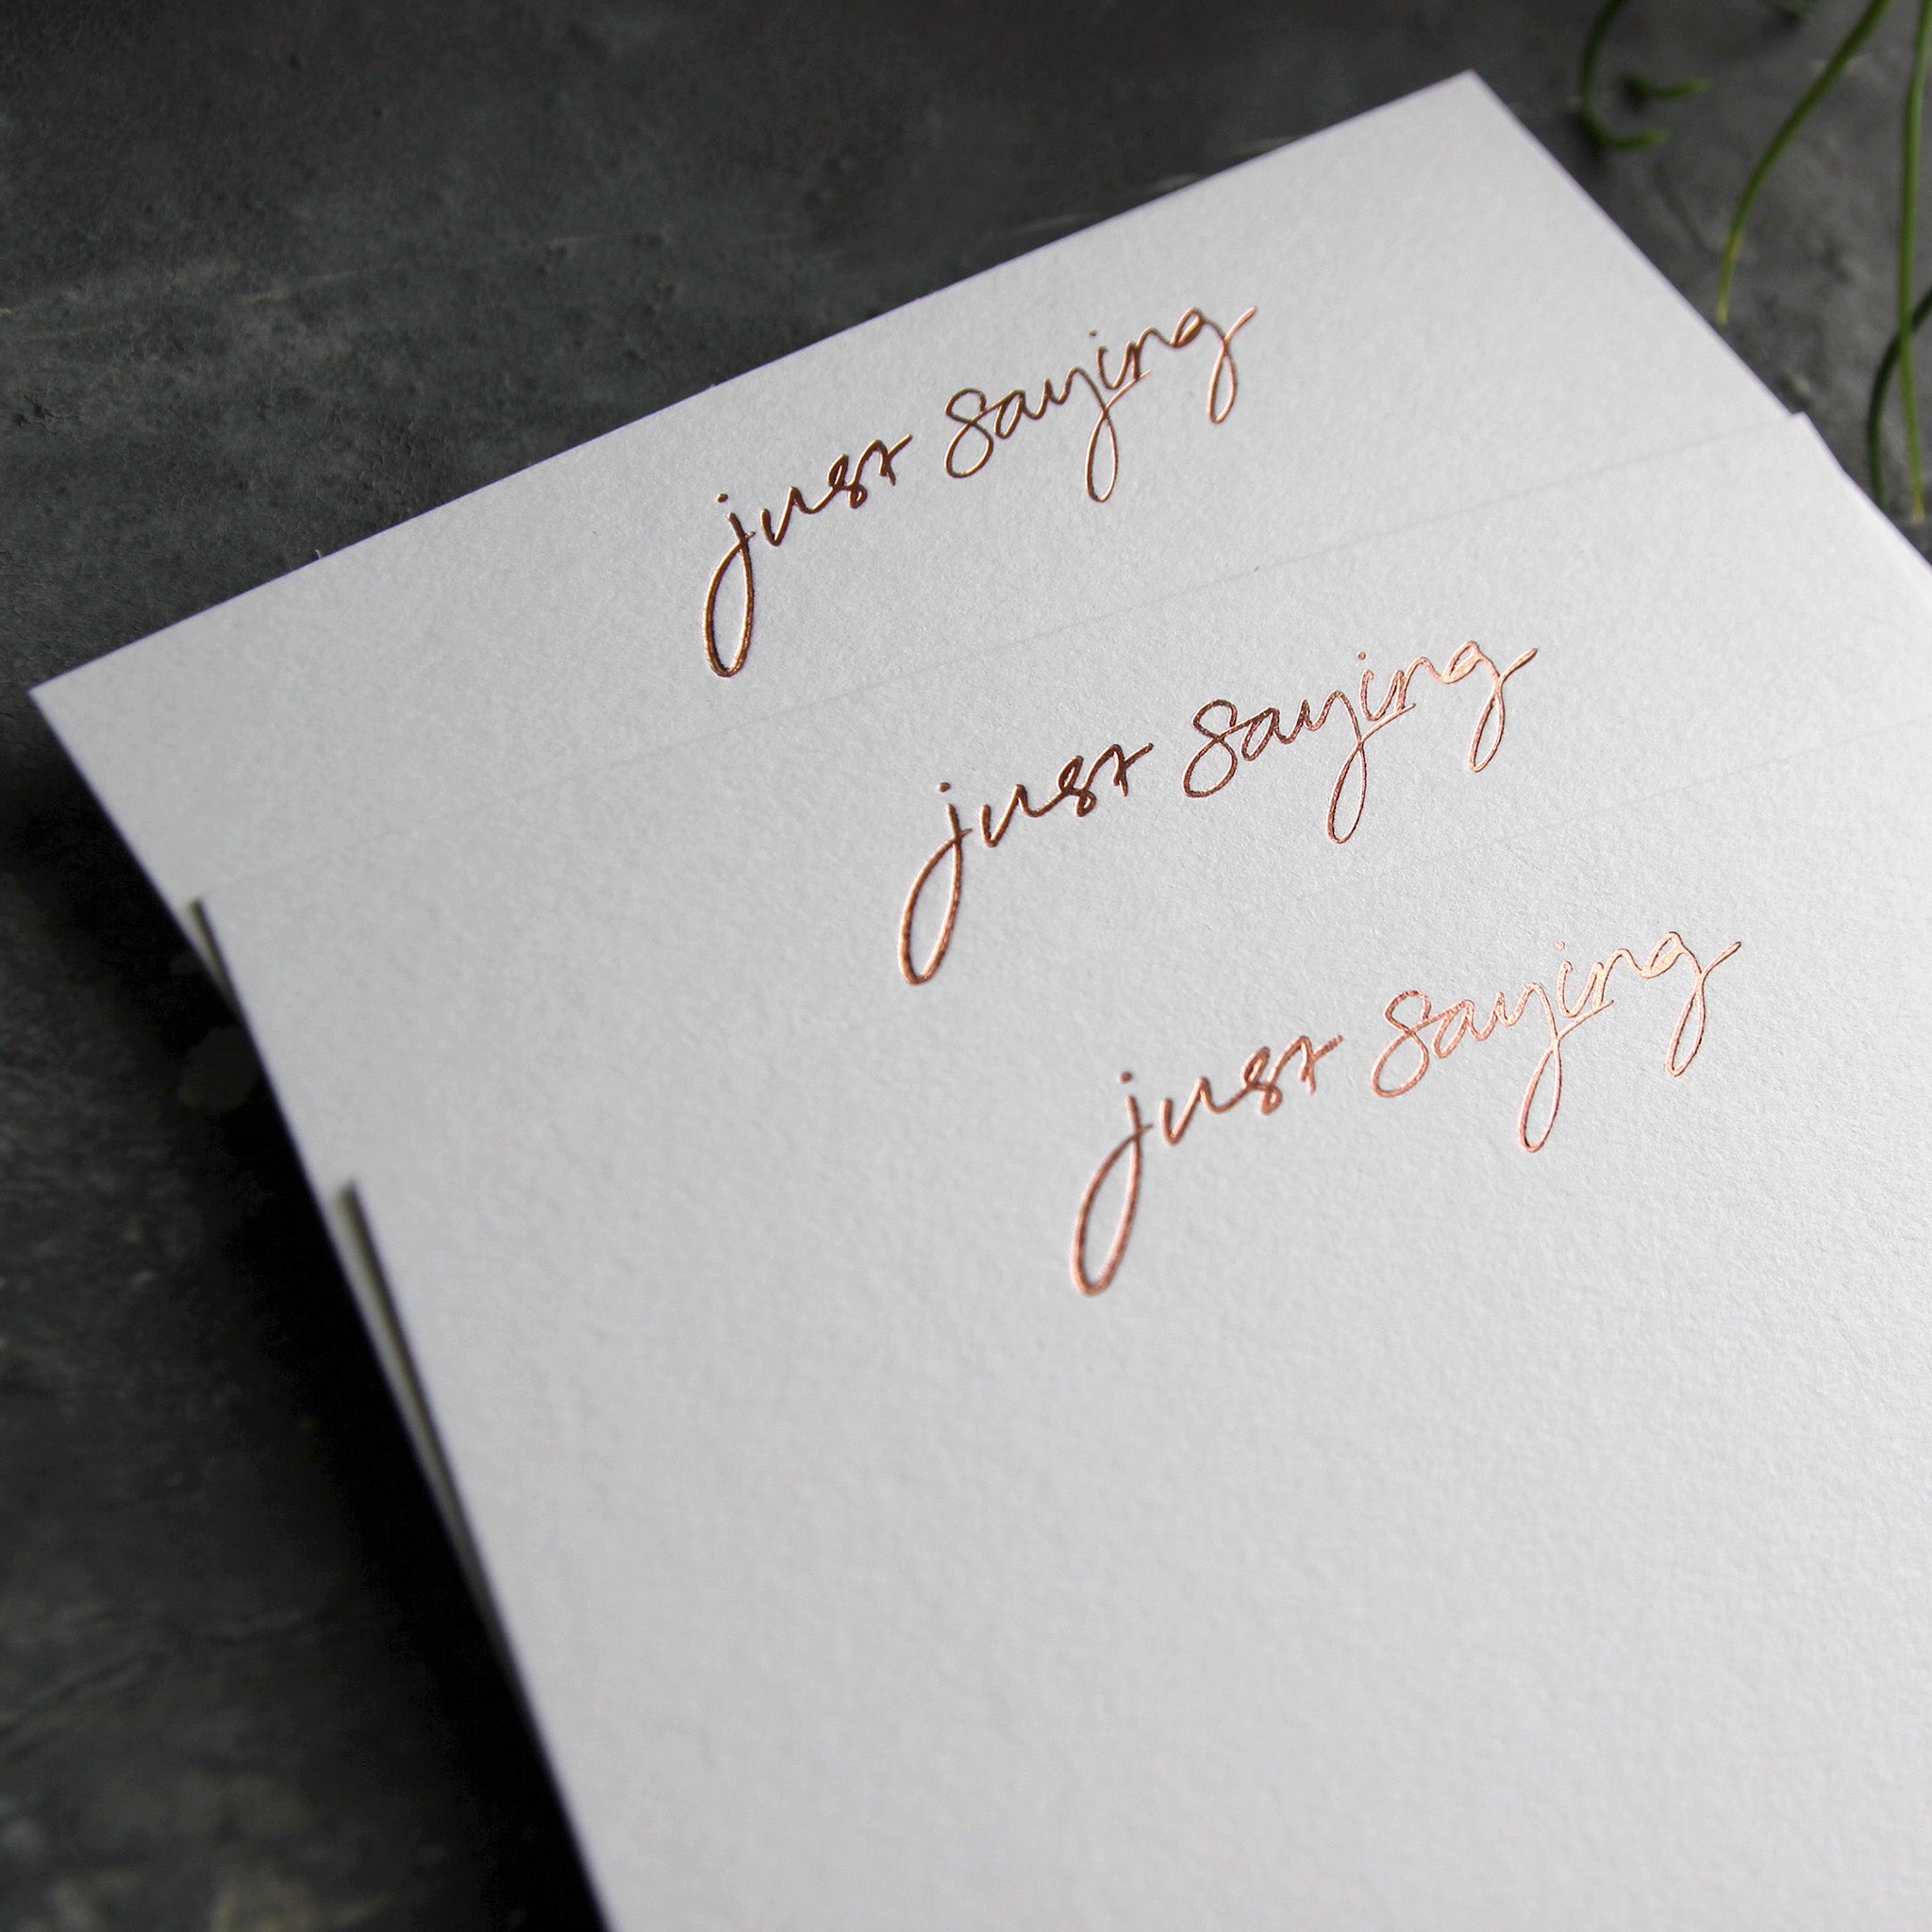 just saying
just saying
just saying